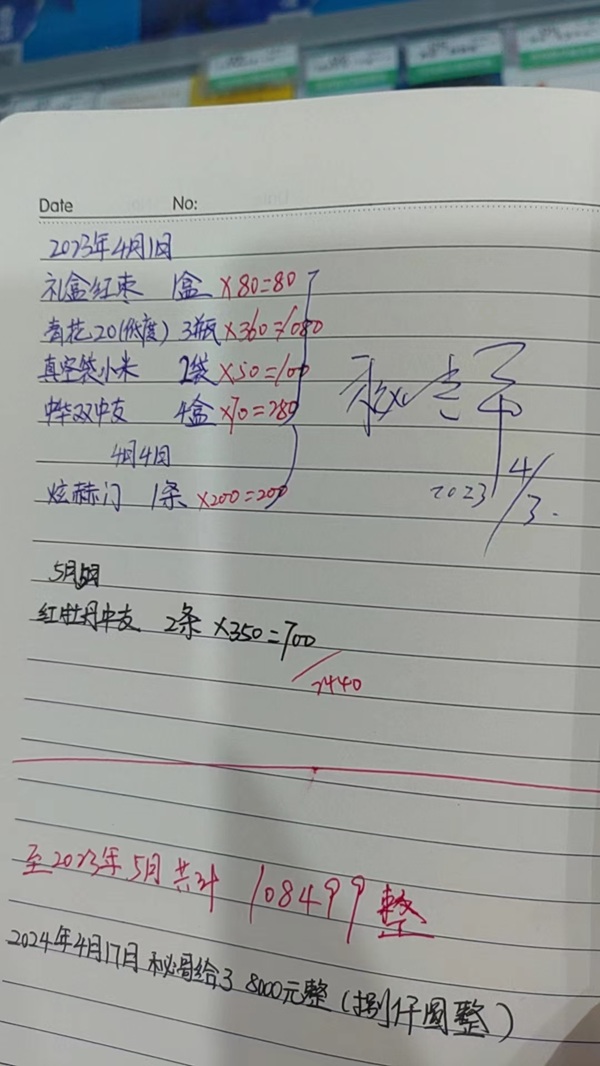 Date No:
2023年4月1日
礼盒红枣 1盒 ×80=80
青花20(低度) 3瓶 ×360=1080
真空袋小米 2袋 ×50=100
中华双中支 4盒 ×70=280
4月4日
炫赫门 1条 ×200=200
2023 4/3.
5月5日
红牡丹中支 2条 ×350=700
2440
至2023年5月共计 108499整
2024年4月17日 秘哥给了 8000元整(捌仟圆整)